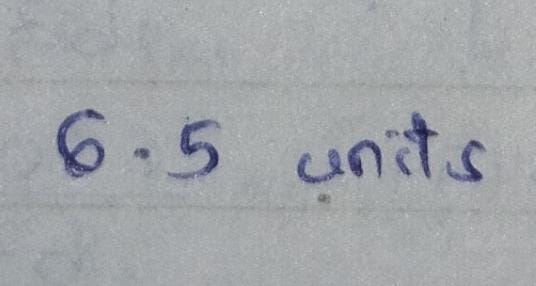 6.5 units